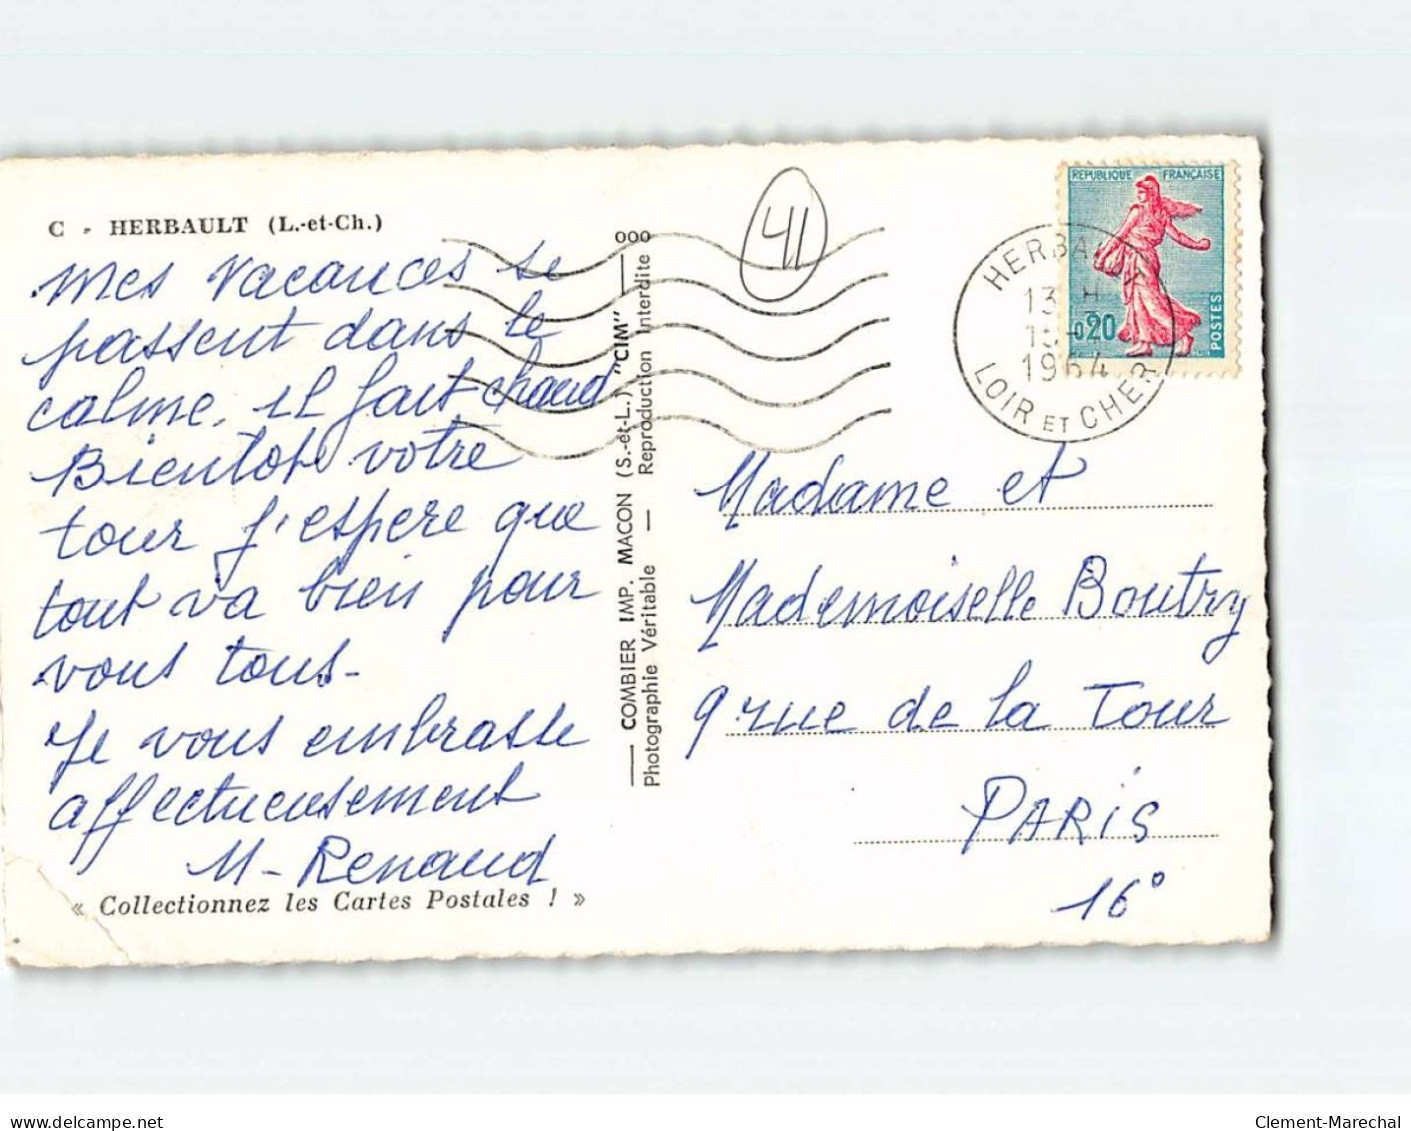 C - HERBAULT (L.-et-Ch.)
Mes vacances se
passent dans le
calme, il fait chaud
Bientot votre
tour j'espere que
tout va bien pour
vous tous-
Je vous embrasse
affectueusement
M- Renaud
« Collectionnez les Cartes Postales ! »
COMBIER IMP. MACON (S.-et-L.) "CIM"
Photographie Véritable — Reproduction interdite
000
41
REPUBLIQUE FRANÇAISE
0,20
POSTES
HERBAULT
13 H
15
1964
LOIR ET CHER
Madame et
Mademoiselle Boutry
9 rue de la Tour
PARIS
16°
delcampe.net
Clement-Marechal